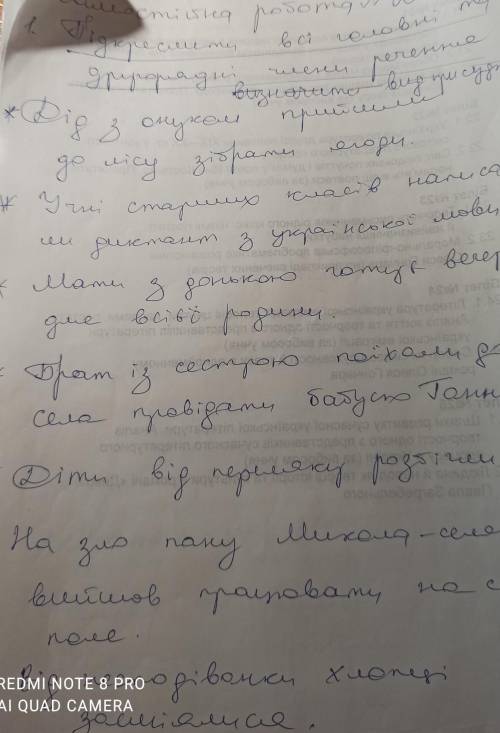 самостійна робота
1. Підкреслити всі головні та
другорядні члени речення
визначити вид присудк
* Дід з онуком прийшли
до лісу зібрати ягоди.
* Учні старших класів написа
ли диктант з української мови
Мати з донькою готує вечер
для всієї родини.
Брат із сестрою поїхали до
села провідати бабусю Ганн
Діти від переляку розбігли
На зло пану Микола-селя
вийшов працювати на с
поле.
Від несподіванки хлопці
засміялися.
REDMI NOTE 8 PRO
AI QUAD CAMERA